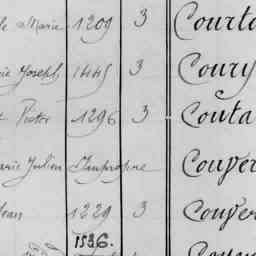 le Marie 1209 3 Courto
rie Joseph 1445 3 Coury
t Pieter 1296 3 Couta
arie Julien Impropre Couver
Jean 1229 3 Couver
1536.